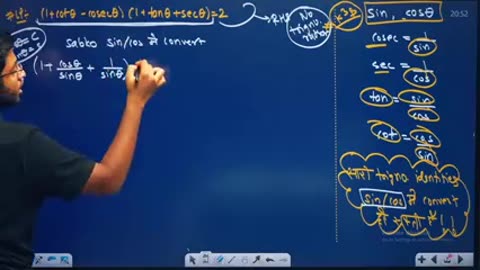 (1+cotθ - cosecθ) (1+tanθ+secθ)=2
RHS
No trigno. ratio
sabko sin/cos में convert
(1+ cosθ/sinθ + 1/sinθ)
sin, cosθ
20:52
cosec = 1/sin
sec = 1/cos
tan = sin/cos
cot = cos/sin
सारी trigno identities
sin/cos में convert